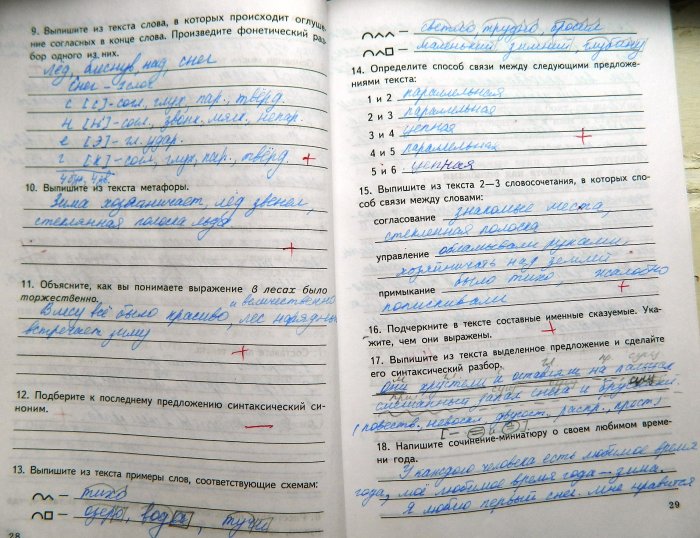 9. Выпишите из текста слова, в которых происходит оглуше-
ние согласных в конце слова. Произведите фонетический раз-
бор одного из них.
лёд, блеснув, над, снег
снег – 1 слог
с [с] – согл, глух, пар., твёрд.
н [н'] – согл., звонк. мягк, непар.
е [э] – гл. удар.
г [к] – согл, глух, пар., твёрд. +
4 бук, 4 зв.
10. Выпишите из текста метафоры.
Зима хозяйничает, лёд звенел,
стеклянная полоска льда
+
11. Объясните, как вы понимаете выражение в лесах было
торжественно.
и величественно
В лесу всё было красиво, лес нарядный
встречает зиму
+
12. Подберите к последнему предложению синтаксический си-
ноним.
—
13. Выпишите из текста примеры слов, соответствующие схемам:
– тихо
– озеро, вода, туча
28
– светло, трудно, бросил
– маленький зимний, глубину
14. Определите способ связи между следующими предложе-
ниями текста:
1 и 2 параллельная
2 и 3 параллельная
3 и 4 цепная
+
4 и 5 параллельная
5 и 6 цепная
15. Выпишите из текста 2—3 словосочетания, в которых спо-
соб связи между словами:
согласование знакомые места,
стеклянная полоска
управление обламывали руками
хозяйничать над землёй
примыкание было тихо жалобно
попискивали +
16. Подчеркните в тексте составные именные сказуемые. Ука-
жите, чем они выражены. +
17. Выпишите из текста выделенное предложение и сделайте
его синтаксический разбор.
они хрустели и оставляли на пальцах
смешанный запах снега и брусники.
(повеств, невоскл. двусост., распр., прост.)
18. Напишите сочинение-миниатюру о своем любимом време-
ни года.
У каждого человека есть любимое время
года, моё любимое время года – зима.
Я люблю первый снег. Мне нравится
29